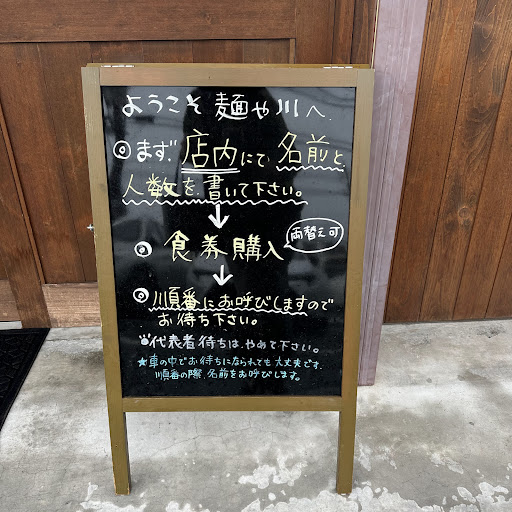 ようこそ 麺や川へ
◎まず、店内にて 名前と、
人数を、書いて下さい。
↓
◎ 食券購入
両替え可
↓
◎ 順番にお呼びしますので
お待ち下さい。
◎代表者待ちは、やめて下さい。
★車の中でお待ちになられても大丈夫です。
順番の際、名前をお呼びします。